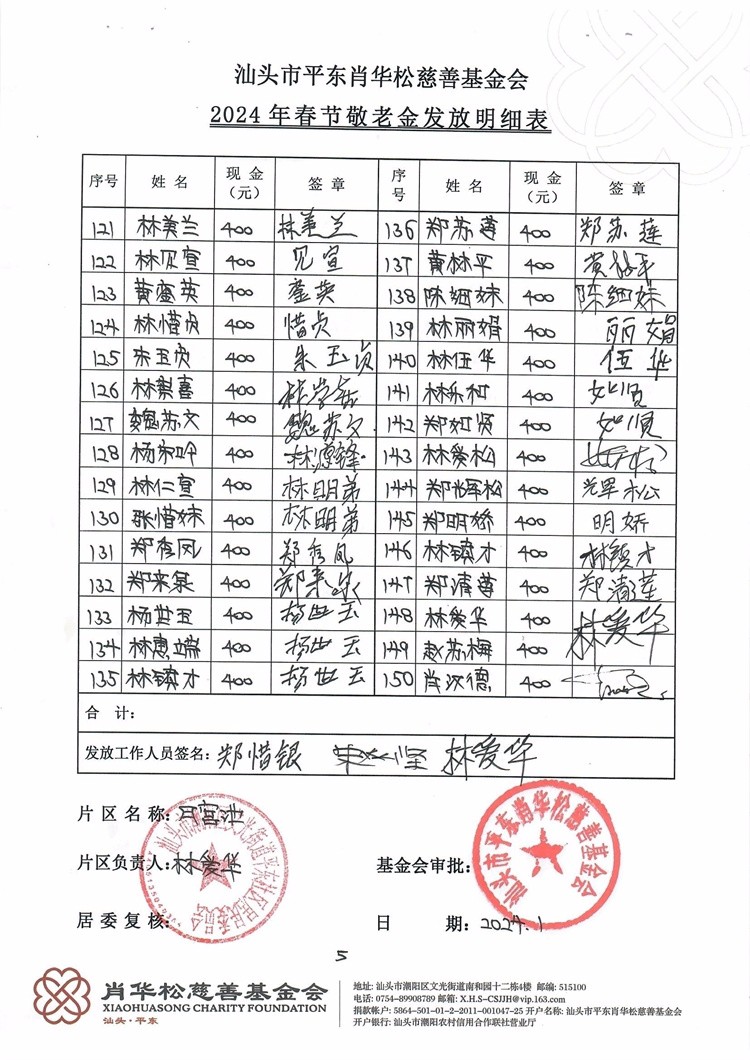 汕头市平东肖华松慈善基金会
2024年春节敬老金发放明细表
序号 姓名 现金（元） 签章 序号 姓名 现金（元） 签章
121 林美兰 400 林美兰 136 郑苏莲 400 郑苏莲
122 林见宣 400 见宣 137 黄林平 400
123 黄銮英 400 銮英 138 陈细妹 400 陈细妹
124 林惜贞 400 惜贞 139 林丽娟 400 丽娟
125 朱玉贞 400 朱玉贞 140 林伍华 400 伍华
126 林梨喜 400 141 林乐和 400 如贤
127 魏苏文 400 魏苏文 142 郑如贤 400 如贤
128 杨宋吟 400 林源锋 143 林爱松 400
129 林仁宣 400 林明弟 144 郑光军松 400 光军松
130 张惜妹 400 林明弟 145 郑明娇 400 明娇
131 郑秀凤 400 郑秀凤 146 林镇才 400 林镇才
132 郑来泉 400 郑来泉 147 郑清莲 400 郑清莲
133 杨世玉 400 杨世玉 148 林爱华 400 林爱华
134 林惠端 400 杨世玉 149 赵苏梅 400
135 林镇才 400 杨世玉 150 肖汉德 400
合计：
发放工作人员签名：郑惜银 林爱华
片区名称：
片区负责人：林爱华 基金会审批：
居委复核： 日期：2024.1
汕头市平东肖华松慈善基金会
5
肖华松慈善基金会
XIAOHUASONG CHARITY FOUNDATION
汕头·平东
地址: 汕头市潮阳区文光街道南和园十二栋4楼 邮编: 515100
电话: 0754-89908789 邮箱: X.H.S-CSJJH@vip.163.com
捐款帐户: 5864-501-01-2-2011-001047-25 开户名称: 汕头市平东肖华松慈善基金会
开户银行: 汕头市潮阳农村信用合作联社营业厅